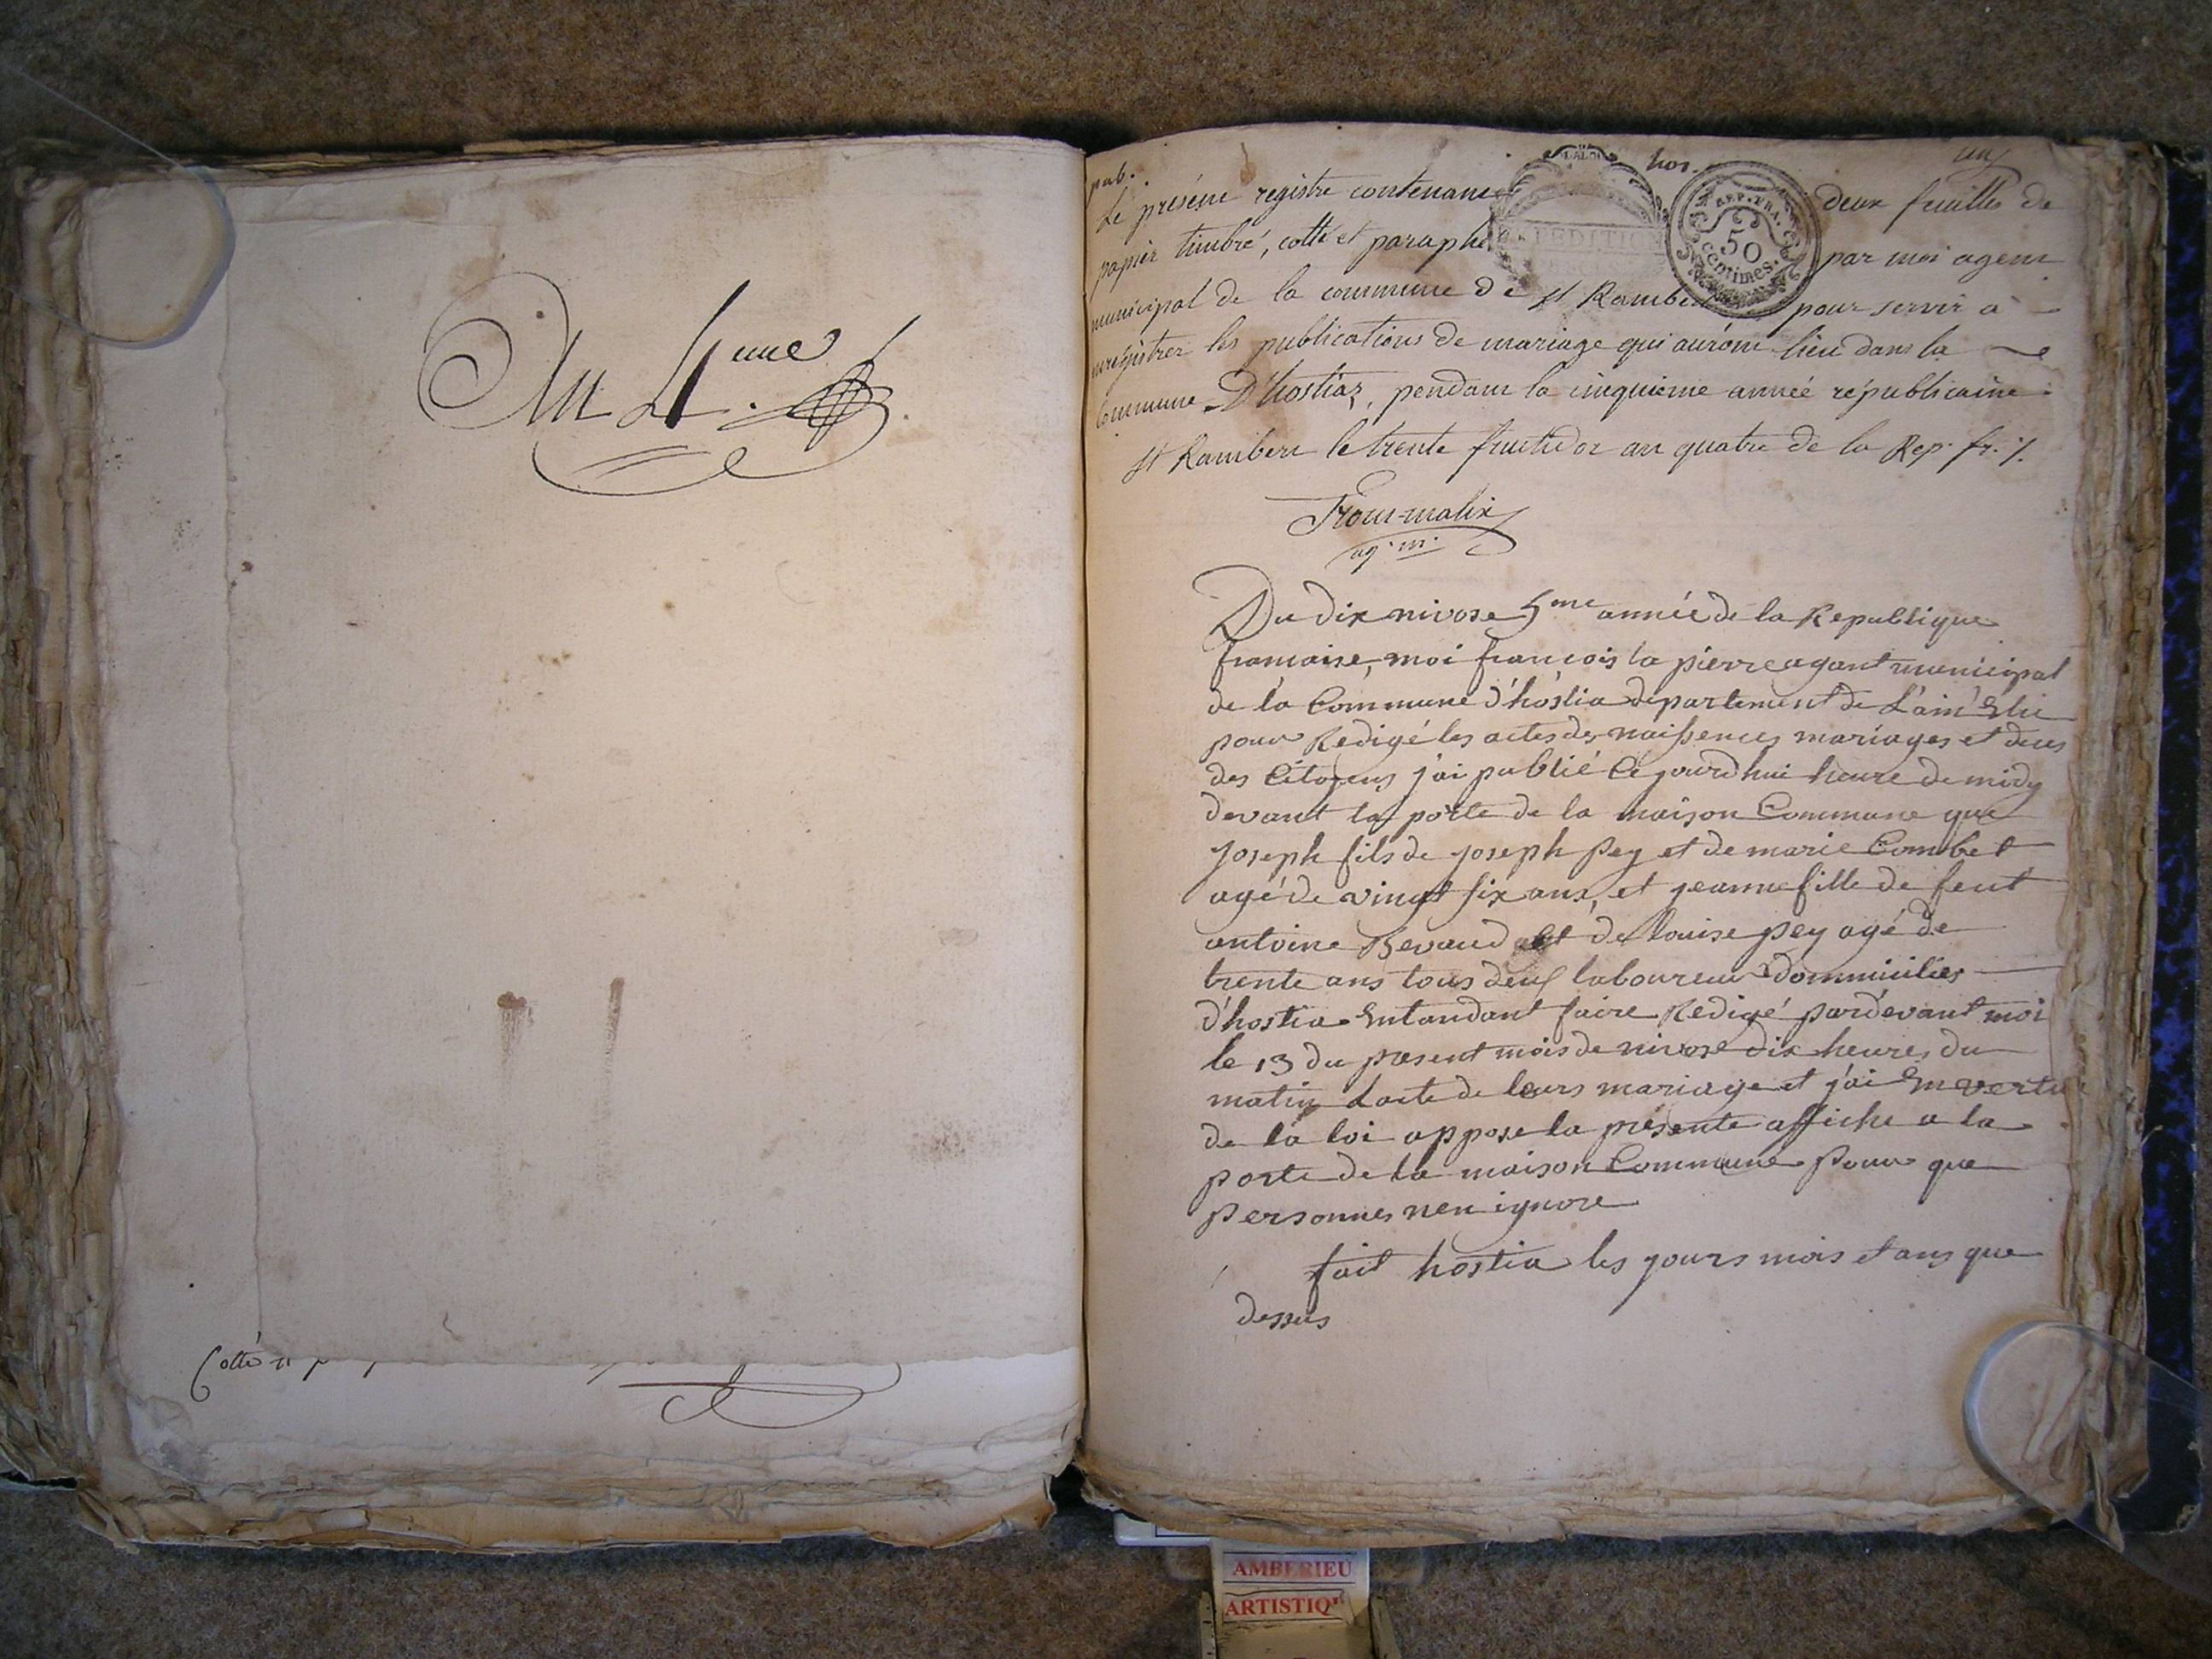 An 4eme
Cotté
pub.
hos.
un
Le présent registre contenant deux feuilles de
papier timbré, cotté et paraphé par moi agent
municipal de la commune de St Rambert pour servir à
enregistrer les publications de mariage qui auront lieu dans la
Commune D'hostiaz, pendant la cinquieme année républicaine
St Rambert le trente fructidor an quatre de la Rep. fr. /.
ag. m.
REP. FRA.
50
centimes.
Du dix nivose 5me année de la Republique
francaise, moi francois la pierre agant municipal
de la Commune d'hostia departement de L'ain Elu
pour Redigé les actes des naissences mariages et deces
des Citoyens j'ai publié Cejourdhui heure de midy
devant la porte de la maison Commune que
joseph fils de joseph Pey et de marie Combet
agé de vingt six ans, et jeanne fille de feut
antoine Bevaud et de louise pey agé de
trente ans tous deux laboureur dommicilies
d'hostia Entandant faire Redigé pardevant moi
le 13 du present mois de nivose dix heures du
matin Lacte de leurs mariage et j'ai En vertu
de la loi appose la présente affiche a la
porte de la maison Commune Pour que
Personnes nen ignore
fait hostia les jours mois et ans que
dessus
AMBERIEU
ARTISTIQ